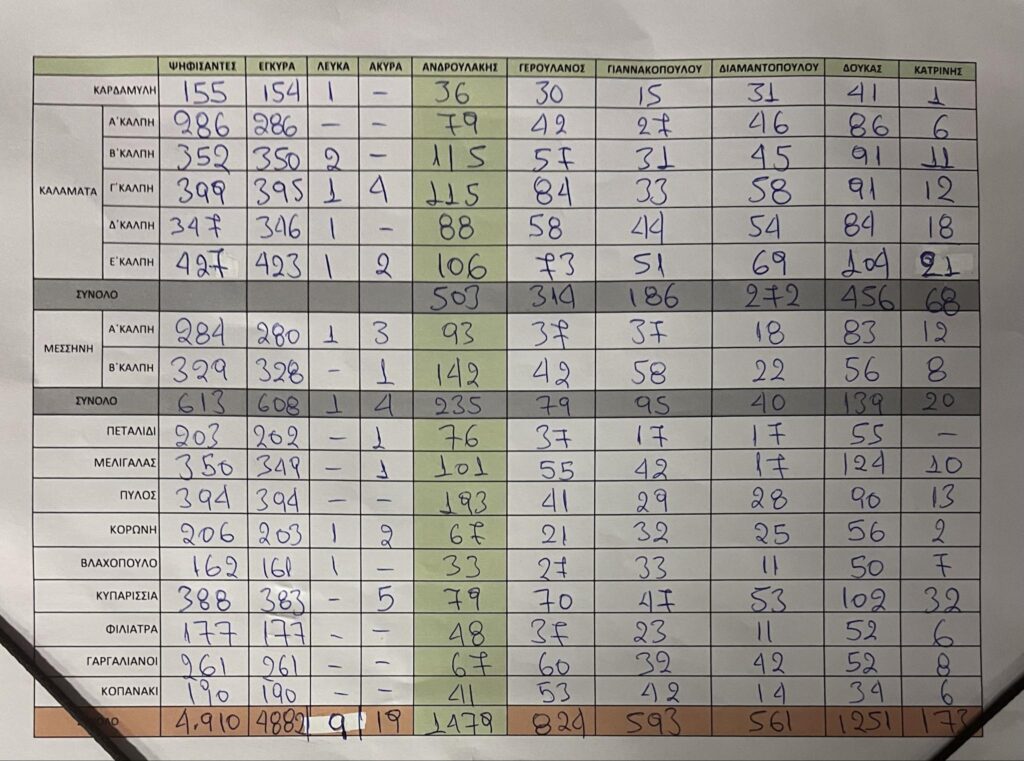 ΨΗΦΙΣΑΝΤΕΣ ΕΓΚΥΡΑ ΛΕΥΚΑ ΑΚΥΡΑ ΑΝΔΡΟΥΛΑΚΗΣ ΓΕΡΟΥΛΑΝΟΣ ΓΙΑΝΝΑΚΟΠΟΥΛΟΥ ΔΙΑΜΑΝΤΟΠΟΥΛΟΥ ΔΟΥΚΑΣ ΚΑΤΡΙΝΗΣ
ΚΑΡΔΑΜΥΛΗ 155 154 1 - 36 30 15 31 41 1
Α΄ΚΑΛΠΗ 286 286 - - 79 42 27 46 86 6
Β΄ΚΑΛΠΗ 352 350 2 - 115 57 31 45 91 11
ΚΑΛΑΜΑΤΑ Γ΄ΚΑΛΠΗ 399 395 1 4 115 84 33 58 91 12
Δ΄ΚΑΛΠΗ 347 346 1 - 88 58 44 54 84 18
Ε΄ΚΑΛΠΗ 427 423 1 2 106 73 51 69 104 21
ΣΥΝΟΛΟ 503 314 186 272 456 68
ΜΕΣΣΗΝΗ Α΄ΚΑΛΠΗ 284 280 1 3 93 37 37 18 83 12
Β΄ΚΑΛΠΗ 329 328 - 1 142 42 58 22 56 8
ΣΥΝΟΛΟ 613 608 1 4 235 79 95 40 139 20
ΠΕΤΑΛΙΔΙ 203 202 - 1 76 37 17 17 55 -
ΜΕΛΙΓΑΛΑΣ 350 349 - 1 101 55 42 17 124 10
ΠΥΛΟΣ 394 394 - - 193 41 29 28 90 13
ΚΟΡΩΝΗ 206 203 1 2 67 21 32 25 56 2
ΒΛΑΧΟΠΟΥΛΟ 162 161 1 - 33 27 33 11 50 7
ΚΥΠΑΡΙΣΣΙΑ 388 383 - 5 79 70 47 53 102 32
ΦΙΛΙΑΤΡΑ 177 177 - - 48 37 23 11 52 6
ΓΑΡΓΑΛΙΑΝΟΙ 261 261 - - 67 60 32 42 52 8
ΚΟΠΑΝΑΚΙ 190 190 - - 41 53 42 14 34 6
ΣΥΝΟΛΟ 4.910 4882 9 19 1479 824 593 561 1251 173